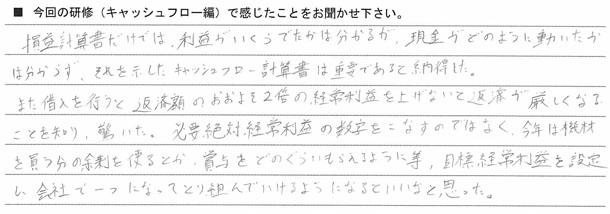 ■ 今回の研修(キャッシュフロー編)で感じたことをお聞かせ下さい。
損益計算書だけでは、利益がいくらでたかは分かるが、現金がどのように動いたか
は分からず、それを示したキャッシュフロー計算書は重要であると納得した。
また借入を行うと返済額のおおよそ2倍の経常利益を上げないと返済が厳しくなる
ことを知り、驚いた。必要絶対経常利益の数字をこなすのではなく、今年は機材
を買う分の余剰を使るとか、賞与をどのぐらいもらえるように等、目標経常利益を設定
し会社で一つになってとり組んでいけるようになるといいなと思った。